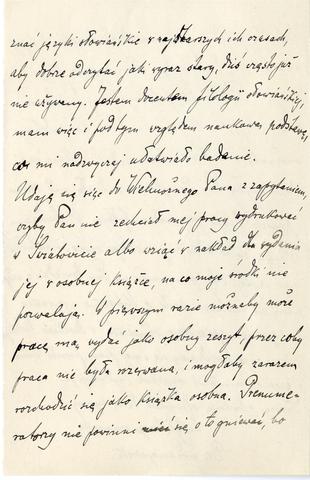 znać języki słowiańskie v najstarszych ich czasach,
aby dobrze odczytać jaki wyraz stary, dziś często już
nie używany. Jestem docentem filologii słowiańskiej,
mam więc i pod tym względem naukową podstawę,
co mi nadzwyczaj ułatwiło badanie.
Udaję się więc do Wielmożnego Pana z zapytaniem,
czyby Pan nie zechciał mej pracy wydrukować
v Światowicie albo wziąć v nakład dla wydania
jej v osobnej książce, na co moje środki nie
pozwalają. V pierwszym razie możnaby może
pracę mą wydać jako osobny zeszyt, przez coby
praca nie była rozerwana, i mogłaby zarazem
rozchodzić się jako książka osobna. Prenume-
ratorzy nie powinni się o to gniewać, bo